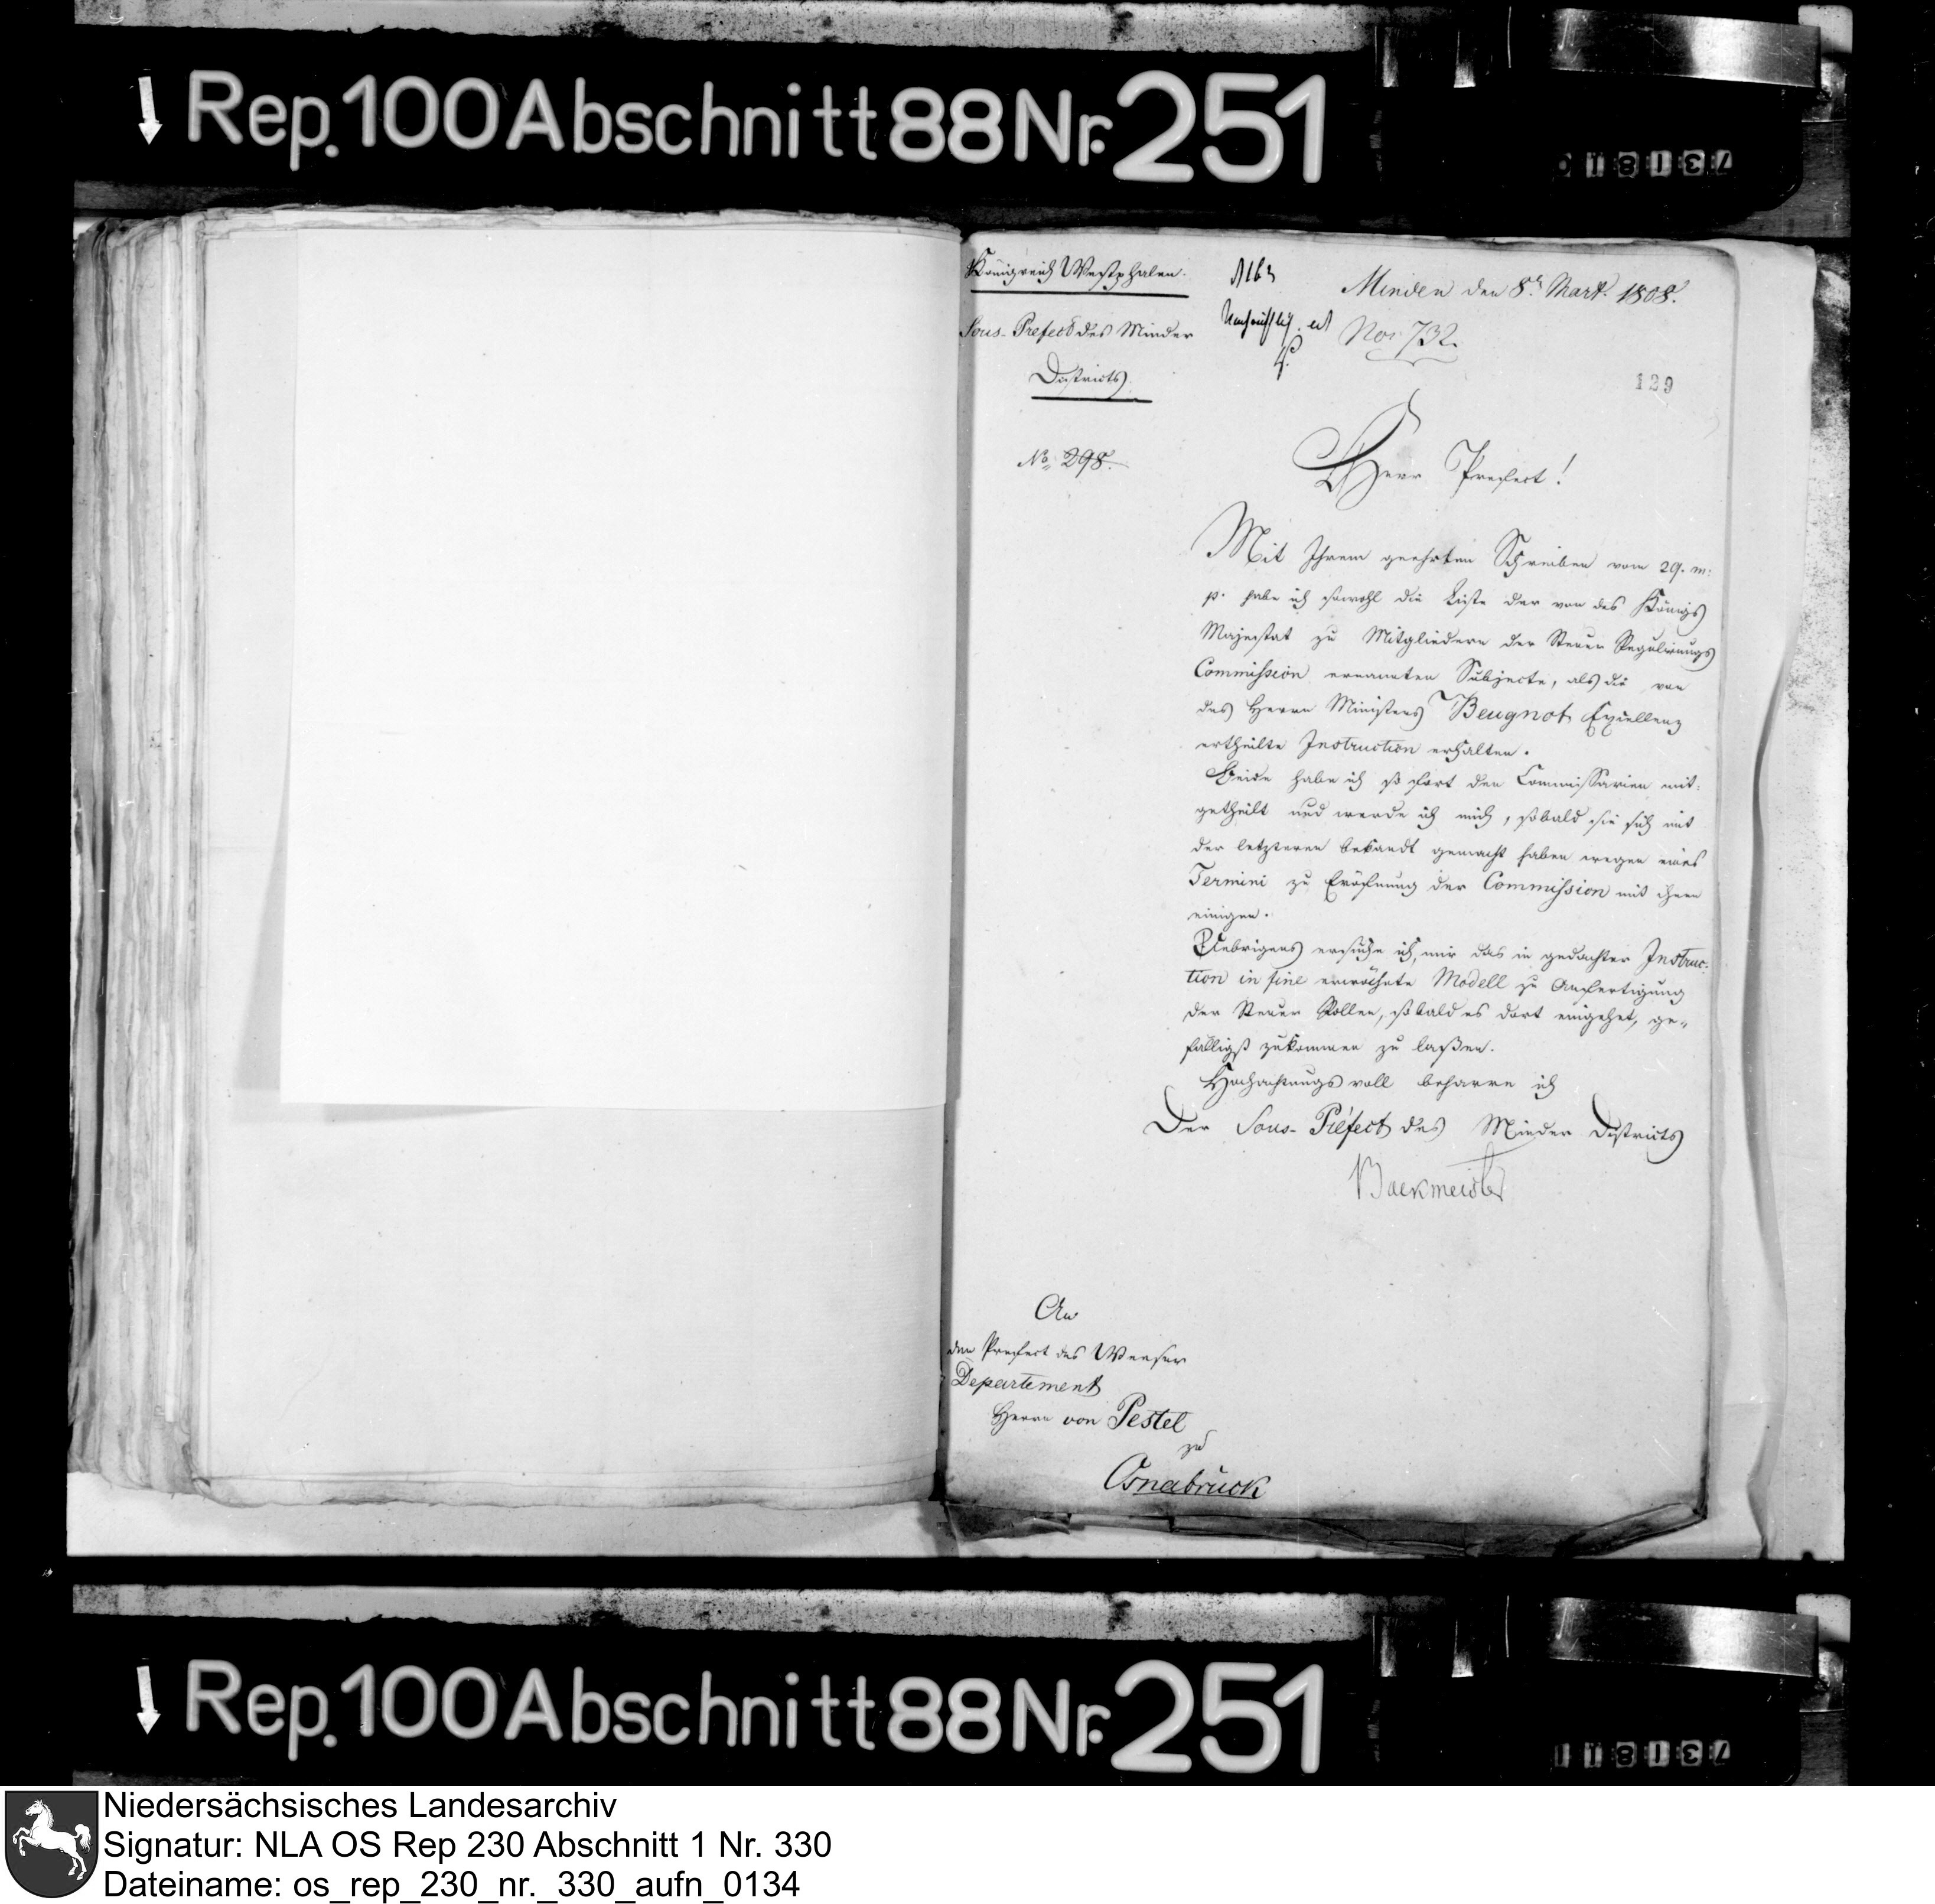 Rep. 100 Abschnitt 88 Nr. 251
Königreich Westphalen.
Sous-Prefect des Minder
Districts
No. 298.
Minden den 8. Mart. 1808.
Nor 732.
139
Herr Praefect!
Mit Ihrem geehrten Schreiben vom 29. m:
p. habe ich sowohl die Liste der von des Königs
Majestat zu Mitgliedern der Steuer Regulirungs
Commission ernannten Subjecte, als die von
des Herrn Ministers Beugnot Excellenz
ertheilte Instruction erhalten.
Beide habe ich sofort den Commissarien mit-
getheilt und werde ich mich, sobald sie sich mit
der letzteren bekandt gemacht haben wegen eines
Termini zu Eröfnung der Commission mit ihnen
einigen.
Uebrigens ersuche ich, mir das in gedachter Instruc-
tion in fine erwähnte Modell zu Anfertigung
der Steuer Rollen, sobald es dort eingehet, ge-
fälligst zukommen zu laßen.
Hochachtungsvoll beharre ich
Der Sous-Préfect des Minder Districts
Backmeister
An
den Praefect des Weeser
Departement
Herrn von Pestel
zu
Osnabrück
Rep. 100 Abschnitt 88 Nr. 251
Niedersächsisches Landesarchiv
Signatur: NLA OS Rep 230 Abschnitt 1 Nr. 330
Dateiname: os_rep_230_nr._330_aufn_0134